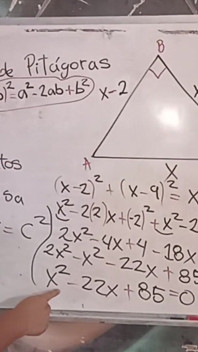 de Pitágoras
)²=a²-2ab+b²
B
x-2
A
x
tos
sa
= c²
(x-2)²+(x-9)²=x
x²-2(2)x+(-2)²+x²-2
2x²-4x+4-18x
2x²-x²-22x+85
x²-22x+85=0